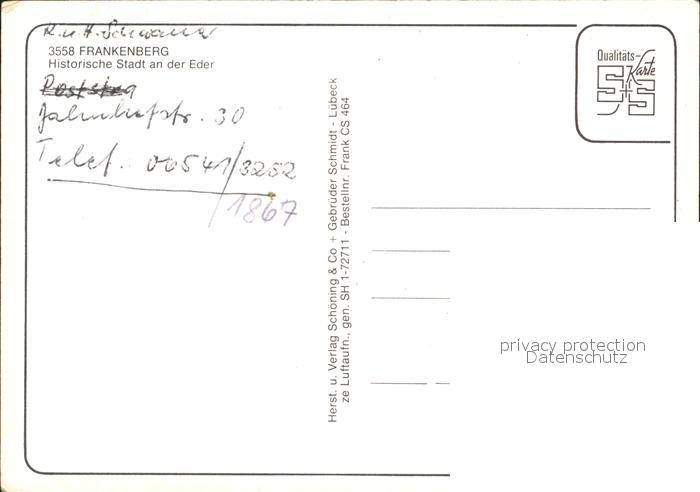 R. u. H.
3558 FRANKENBERG
Historische Stadt an der Eder
30
Telef. 00541/3252
1867
Qualitäts-
Karte
S+S
Herst. u. Verlag Schöning & Co + Gebrüder Schmidt - Lübeck
ze Luftaufn., gen. SH 1-72711 - Bestellnr. Frank CS 464
privacy protection
Datenschutz